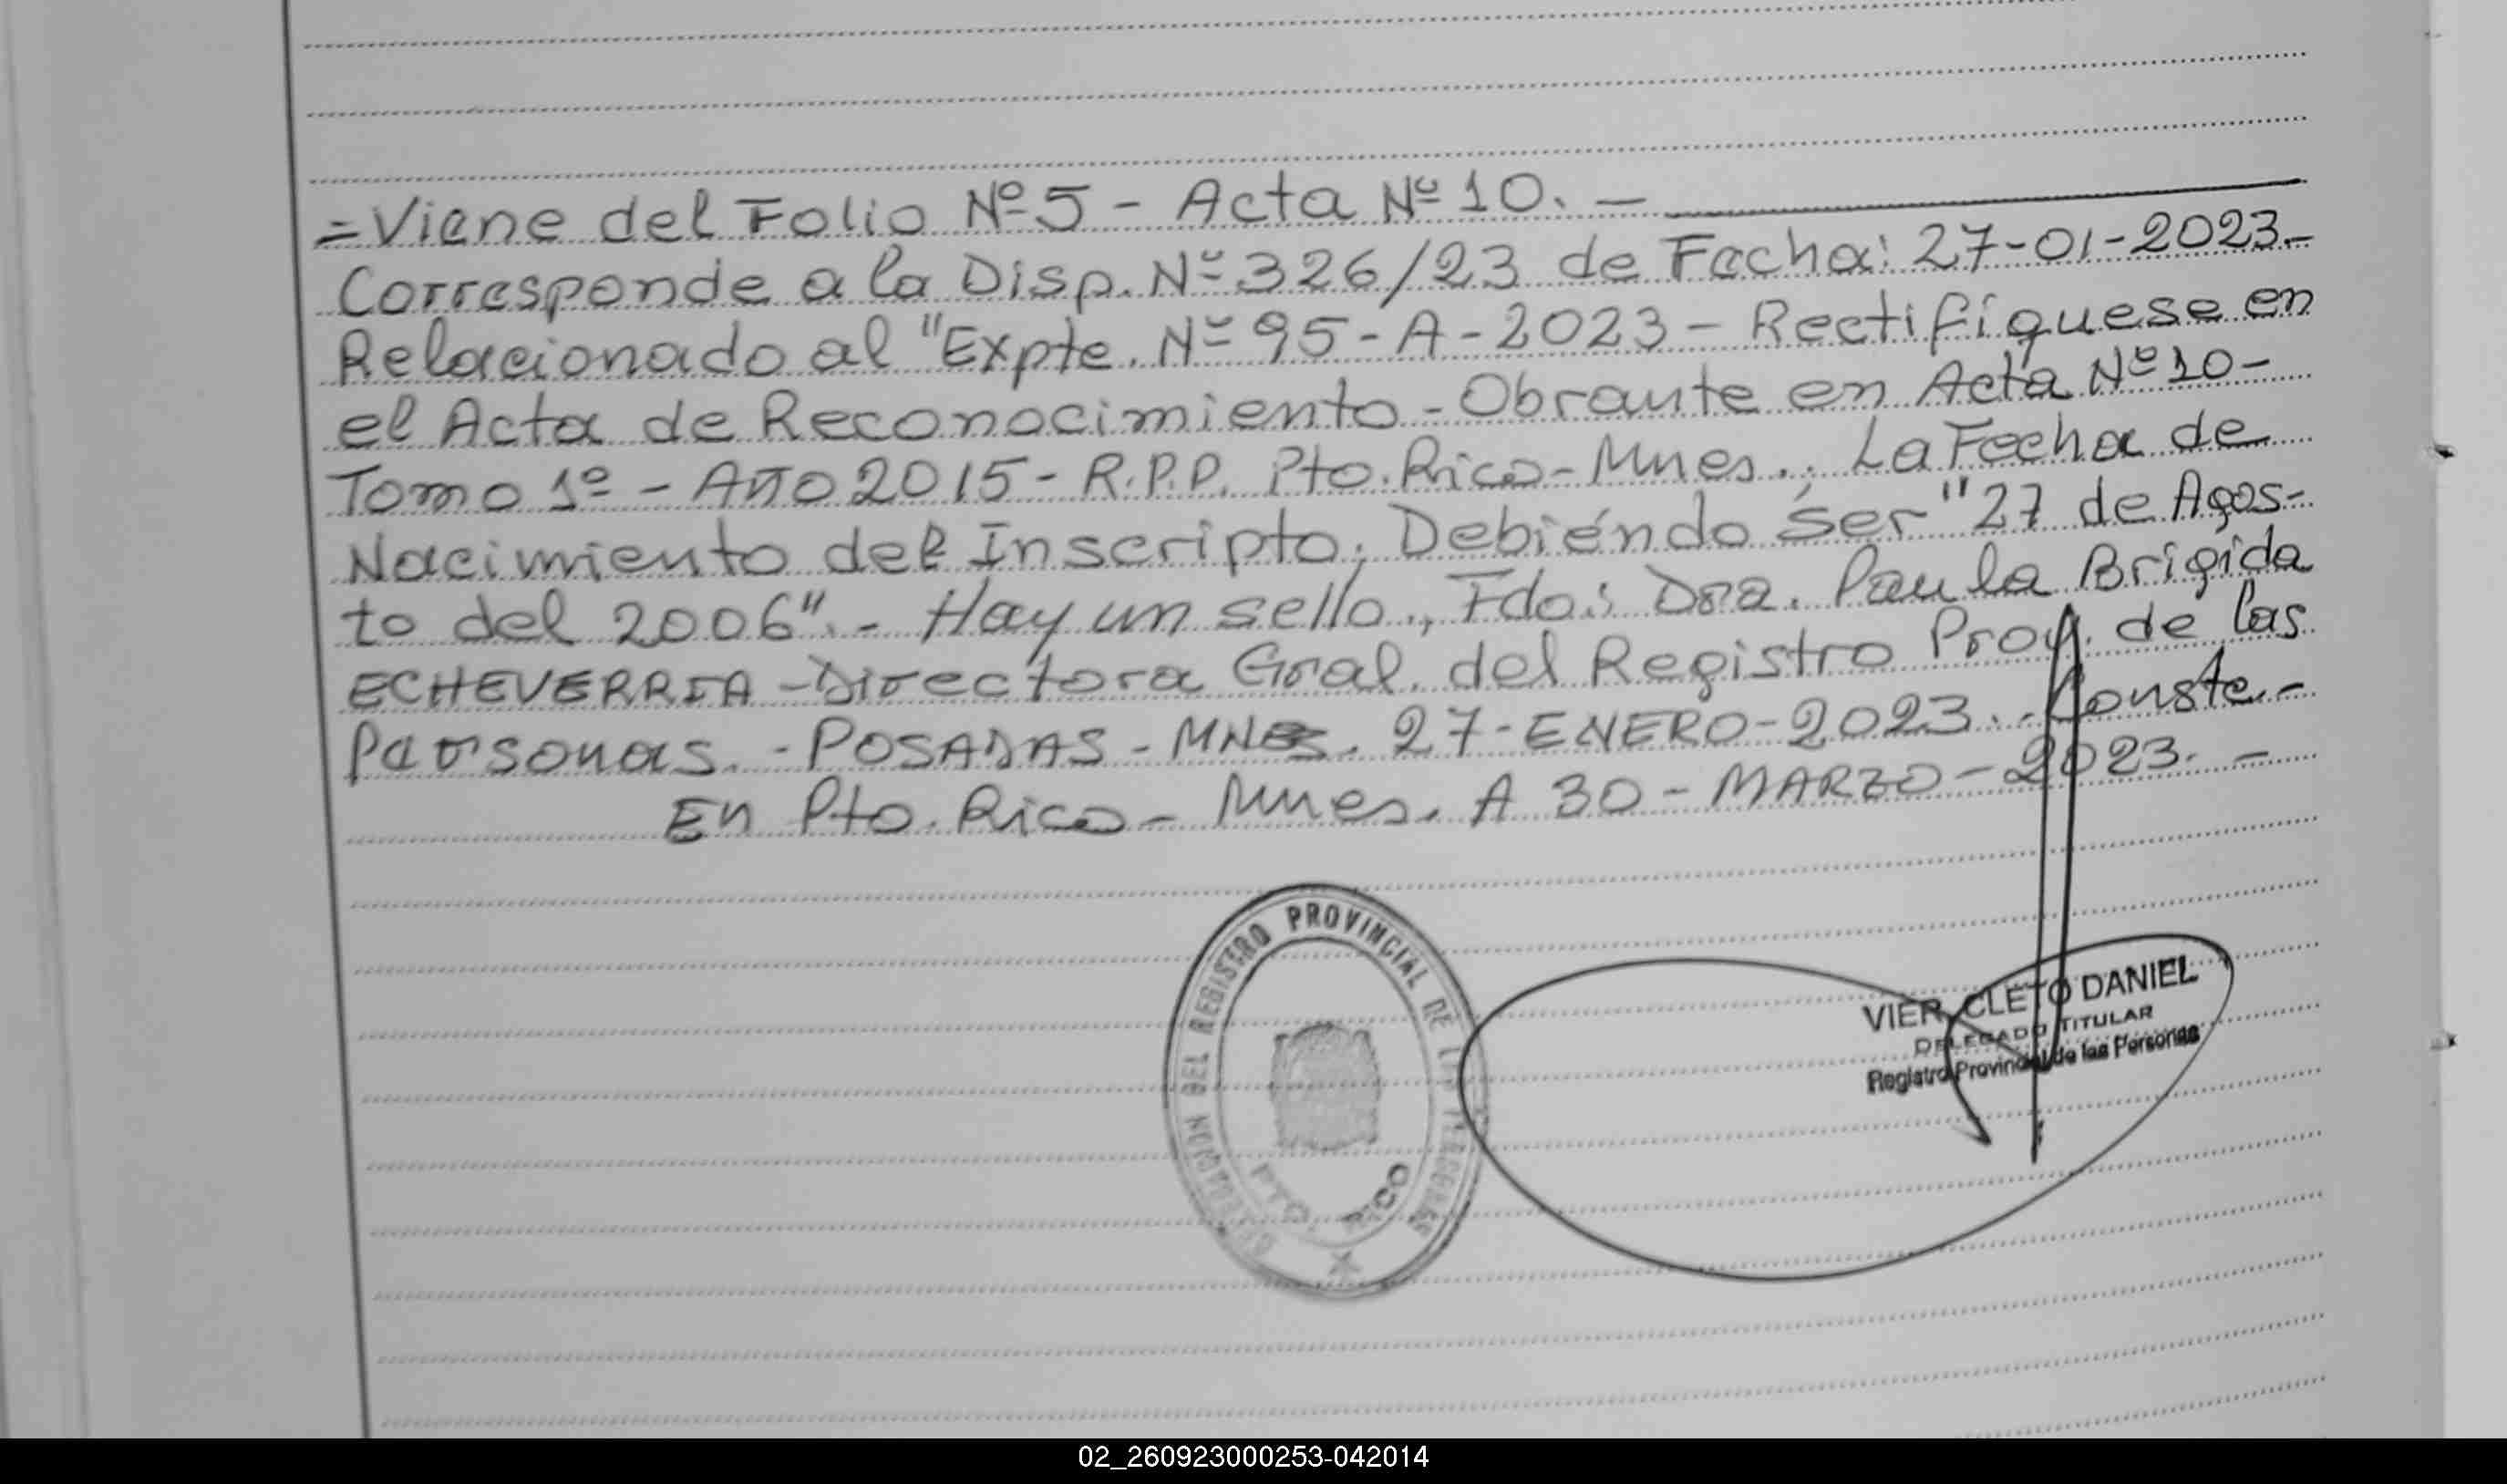 =Viene del Folio Nº 5 - Acta Nº 10. —
Corresponde a la Disp. Nº 326/23 de Fecha: 27-01-2023.-
Relacionado al "Expte. Nº 95-A-2023 - Rectifíquese en
el Acta de Reconocimiento - Obrante en Acta Nº 10-
Tomo 1º - Año 2015 - R.P.P. Pto. Rico - Mnes.. La Fecha de
Nacimiento del Inscripto. Debiéndo ser "27 de Agos-
to del 2006".- Hay un sello., Fdo: Dra. Paula Brigida
ECHEVERRIA - Directora Gral. del Registro Prov. de las
Personas. - POSADAS - MNES. 27-ENERO-2023.. Conste.-
En Pto. Rico - Mnes. A 30 - MARZO - 2023. -
DELEGACION DEL REGISTRO PROVINCIAL DE LAS PERSONAS
PTO. RICO
VIER, CLETO DANIEL
DELEGADO TITULAR
Registro Provincial de las Personas
02_260923000253-042014